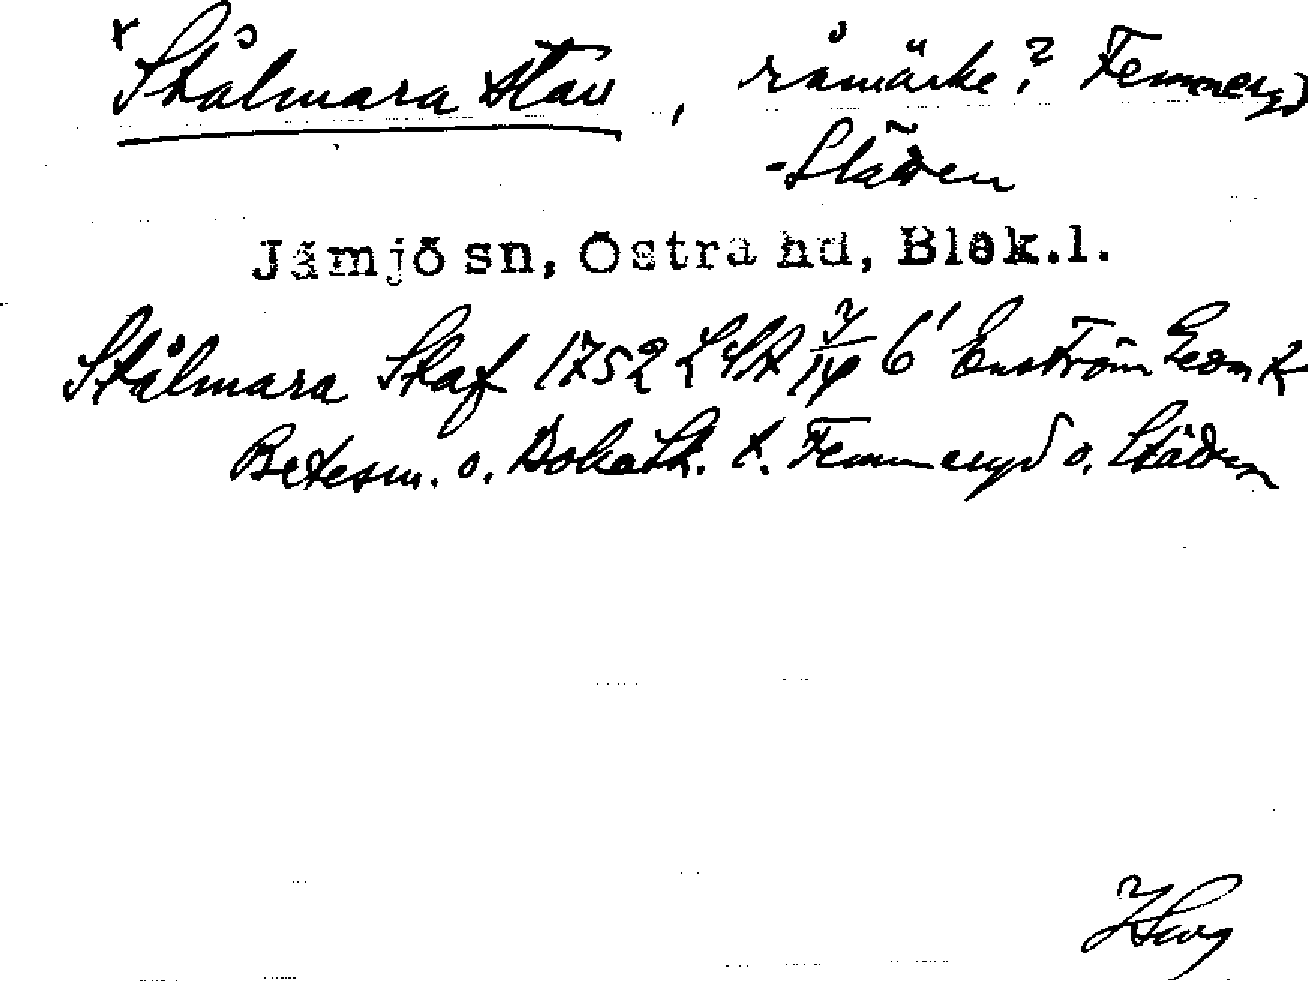 Stålmara stav, råmärke? Femmeryd
-Stäven
Jämjö sn, Östra hd, Blek.l.
Stålmara Staf 1752 LSA 6' Enström Geom k
Betesm. o. t. Femmeryd o. Stäven